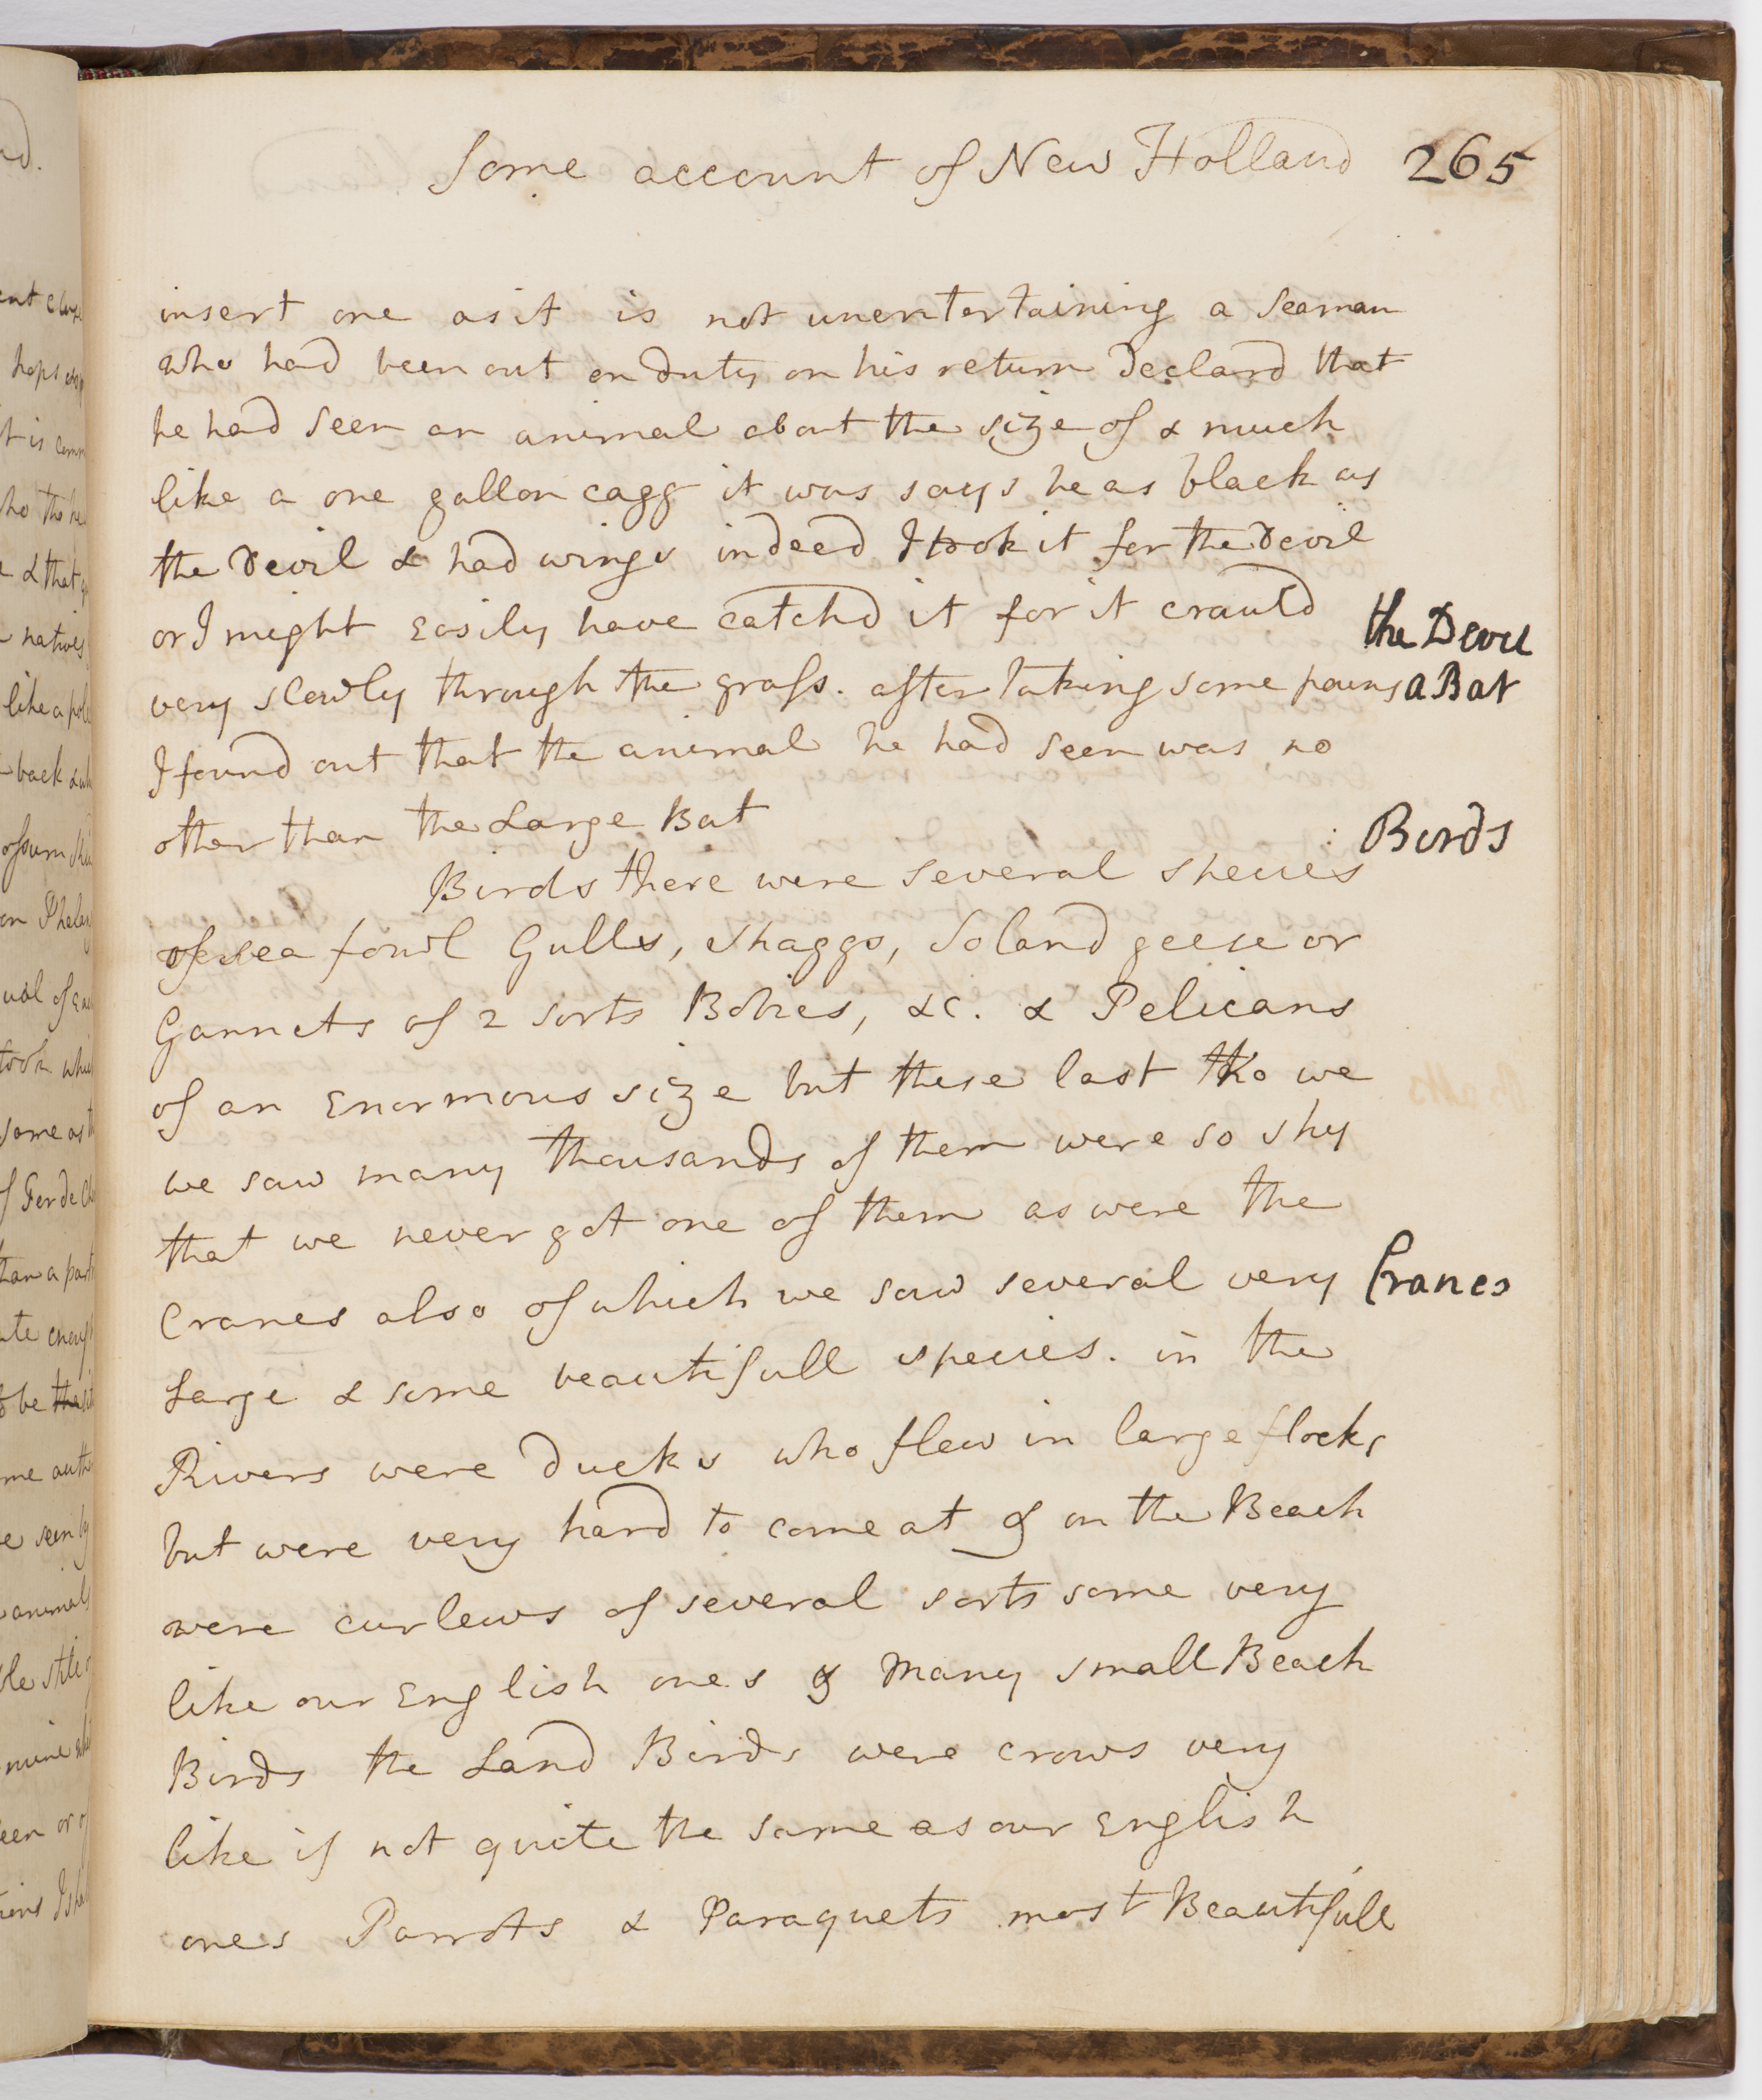 Some account of New Holland 265
insert one as it is not unentertaining a Seaman
who had been out on duty on his return declard that
he had seen an animal about the size of & much
like a one gallon cagg it was says he as black as
the Devil & had wings indeed I took it for the Devil
or I might easily have catchd it for it crauld
the Devil
very slowly through the grass. after taking some pains
a Bat
I found out that the animal he had seen was no
other than the Large Bat
Birds
Birds there were several species
of sea fowl Gulls, Shaggs, Soland geese or
Gannets of 2 sorts Bobies, &c. & Pelicans
of an Enormous size but these last tho we
we saw many thousands of them were so shy
that we never got one of them as were the
Cranes also of which we saw several very
Cranes
Large & some beautifull species. in the
Rivers were ducks who flew in large flocks
but were very hard to come at & on the Beach
were curlews of several sorts some very
like our English ones & Many small Beach
Birds the Land Birds were crows very
like if not quite the same as our English
ones Parrots & Paraquets most Beautifull
ad.
hops
t is
& that
natives
like a
back
ual of
took
same as
of
than a
be the
me
seen by
animals
mine
een or